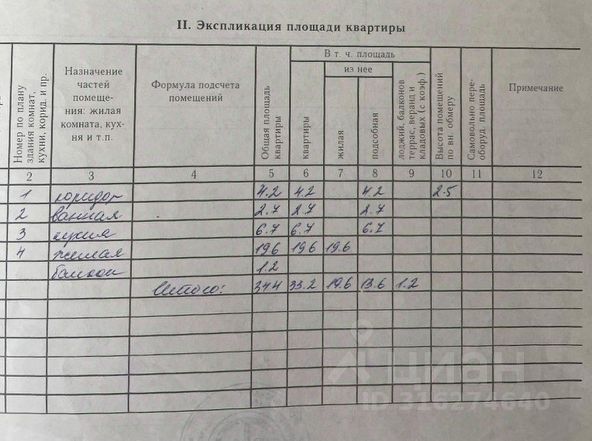 II. Экспликация площади квартиры
Номер по плану здания комнат, кухни, корид. и пр.
Назначение частей помеще- ния: жилая комната, кух- ня и т.п.
Формула подсчета помещений
Общая площадь квартиры
В т. ч. площадь
из нее
квартиры
жилая
подсобная
лоджий, балконов террас, веранд и кладовых (с коэф.)
Высота помещений по вн. обмеру
Самовольно пере- оборуд. площадь
Примечание
2 3 4 5 6 7 8 9 10 11 12
1 коридор 4.2 4.2 4.2 2.5
2 ванная 2.7 2.7 2.7
3 кухня 6.7 6.7 6.7
4 жилая 19.6 19.6 19.6
балкон 1.2
Итого: 34.4 33.2 19.6 13.6 1.2
циан
ID 316274640